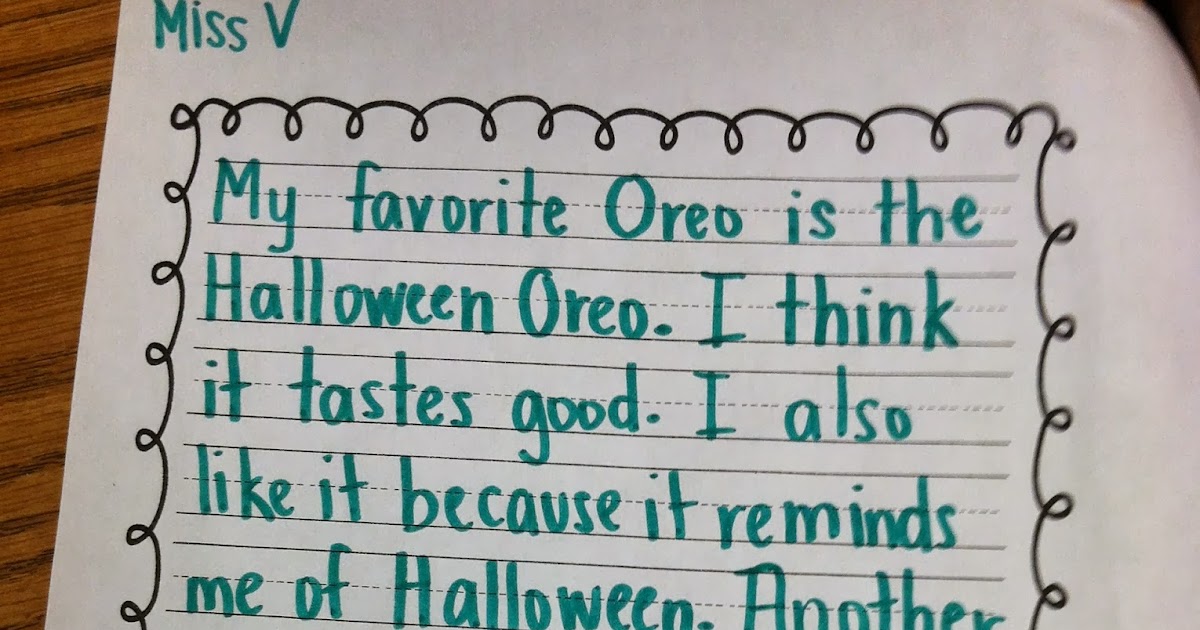 Miss V
My favorite Oreo is the
Halloween Oreo. I think
it tastes good. I also
like it because it reminds
me of Halloween. Another